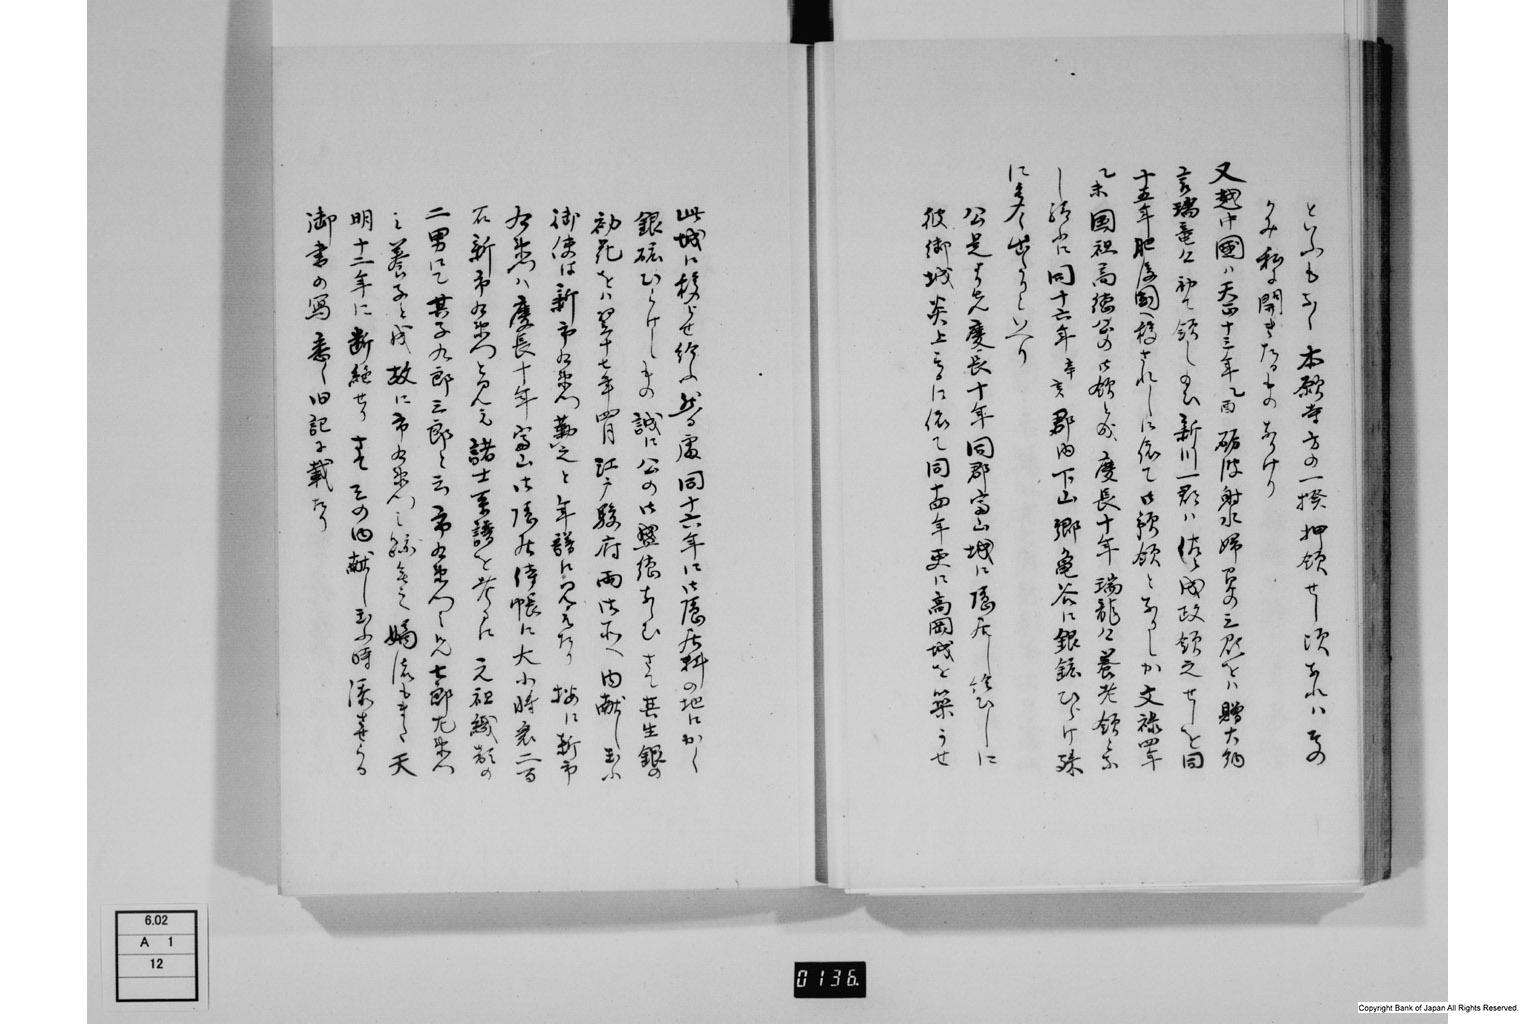 といふもなく本願寺方の一揆押領せし頃なれハその
かみ私に開きたるものなるけり
又越中國ハ天正十三年乙酉砺波射水婦負の三郡をハ贈大納
言瑞竜公初て領し玉ひ新川一郡ハ佐々成政領之せしを同
十五年肥後國へ移されしに依て御預領となりしか文禄四年
乙未國祖高徳公の御領と成慶長十年瑞龍公養老領と
し給ふに同十六年辛亥郡内下山郷亀谷に銀鉱ひらけ殊
に多く出るといへり
公是より先慶長十年同郡富山城に隠居し給ひしに
彼御城炎上するに依て同十四年更に高岡城を築かせ
此城に移らせ給ふ然る處同十六年に御隠居料の地にかく
銀砿ひらけしもの誠に公の御興張なるへしさて其生銀の
初花をハ翌十七年四月江戸駿府両御所へ内献し玉ふ
御使は新市右衛門勤之と年譜に見えたり按に新市
右衛門ハ慶長十年富山御隠居侍帳に大小将衆二百
石新市右衛門と見え諸士系譜を考るに元祖織部の
二男にて其子九郎三郎と云市右衛門く兄七郎左衛門
之養子と成故に市右衛門之跡無之嫡流もまた天
明十二年に断絶せりさてその内献し玉ふ時添させらる
御書の寫悉く旧記に載たり
6.02
A 1
12
0136.
Copyright Bank of Japan All Rights Reserved.